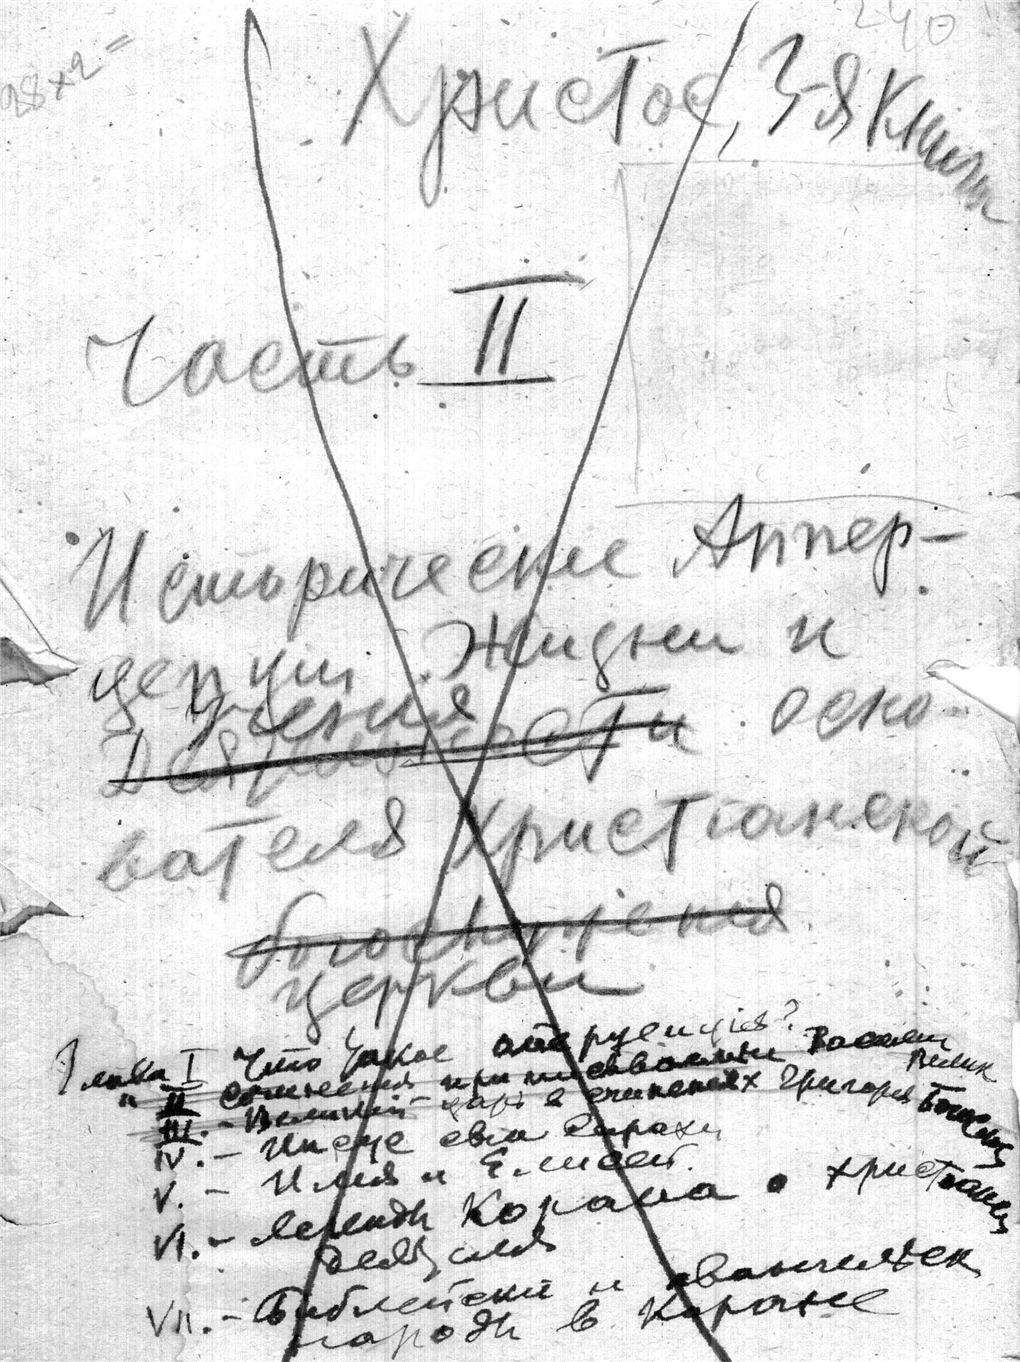 240
28x2=
Христос, 3-я Книга
Часть II
Исторические Аппер-
цепции Жизни и
Учения
осно-
вателя Христианской
богослужения
церкви
Глава I Что такое апперцепция?
" II сочинения приписываемыя Василию Велик
III. - Великий царь в сочинениях Григория Богослов
IV. - Иисус сын Сираха
V. - Илия и Елисей.
VI. - Легенды Корана о христианск
VII. - Библейские и евангельск
народы в Коране